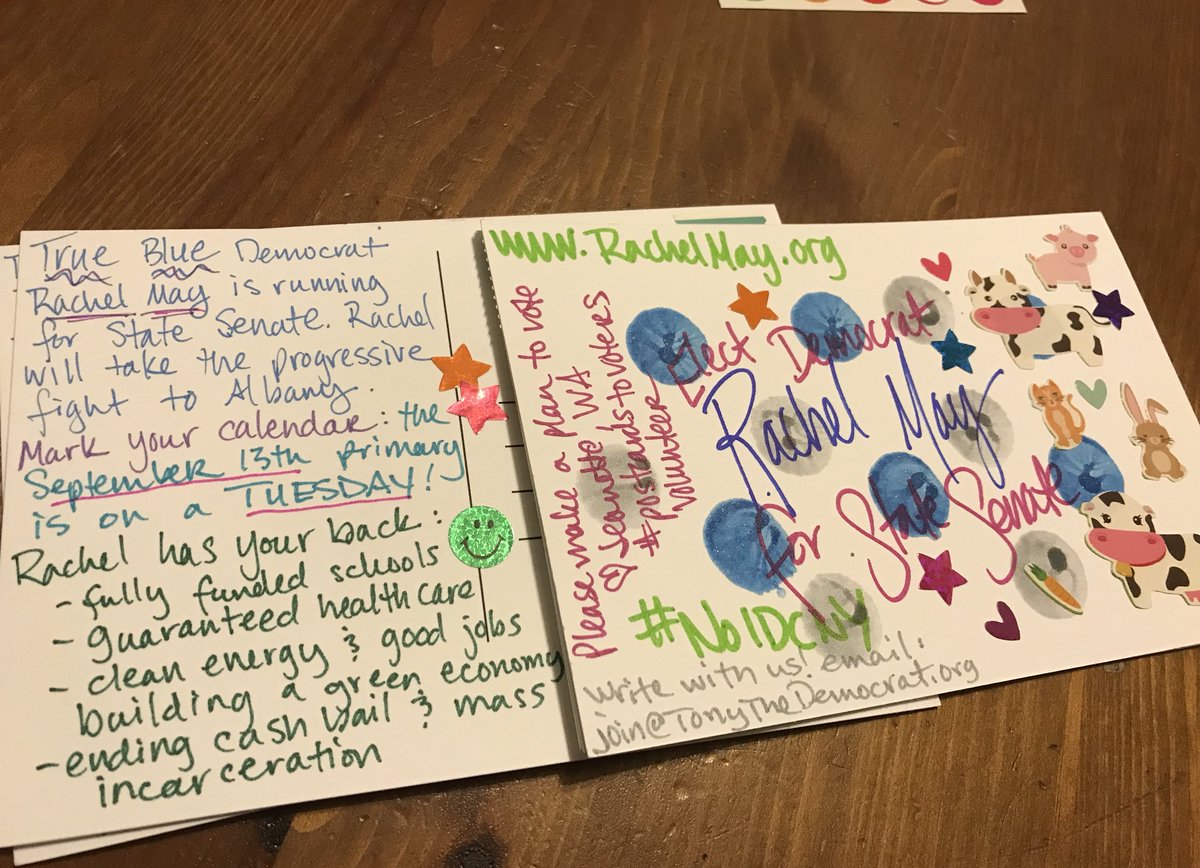 True Blue Democrat
Rachel May is running
for State Senate. Rachel
will take the progressive
fight to Albany.
Mark your calendar: the
September 13th primary
is on a TUESDAY!
Rachel has your back:
- fully funded schools
- guaranteed healthcare
- clean energy & good jobs
building a green economy
- ending cash bail & mass
incarceration
www.RachelMay.org
Please make a plan to vote
♡ Jeanette WA
#postcards to voters
volunteer
Elect Democrat
Rachel May
for State Senate
#NoIDCNY
Write with us! email:
join@TonyTheDemocrat.org